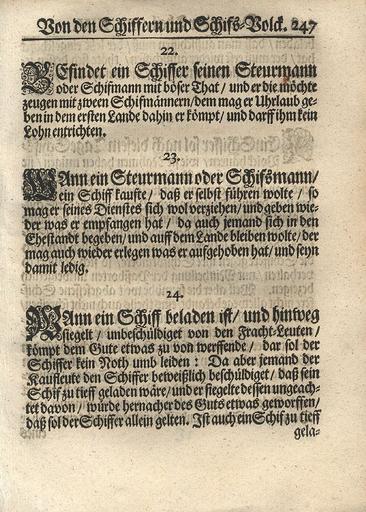 Von den Schiffern und Schifs-Volck. 247
22.
BEfindet ein Schiffer seinen Steurmann
oder Schifmann mit böser That / und er die möchte
zeugen mit zween Schifmännern/dem mag er Uhrlaub ge-
ben in dem ersten Lande dahin er kömpt/ und darff ihm kein
Lohn entrichten.
23.
WAnn ein Steurmann oder Schifsmann/
ein Schiff kauffte / daß er selbst führen wolte / so
mag er seines Dienstes sich wol verziehen/ und geben wie-
der was er empfangen hat / da auch jemand sich in den
Ehestandt begeben/ und auff dem Lande bleiben wolte / der
mag auch wieder erlegen was er aufgehoben hat/ und seyn
damit ledig.
24.
WAnn ein Schiff beladen ist / und hinweg
siegelt / unbeschüldiget von den Fracht-Leuten /
kömpt dem Gute etwas zu von werffende / dar sol der
Schiffer kein Noth umb leiden : Da aber jemand der
Kaufleute den Schiffer beweißlich beschüldiget / daß sein
Schif zu tieff geladen wäre / und er siegelte dessen ungeach-
tet davon / würde hernacher des Guts etwas geworffen/
daß sol der Schiffer allein gelten. Ist auch ein Schif zu tieff
gela-